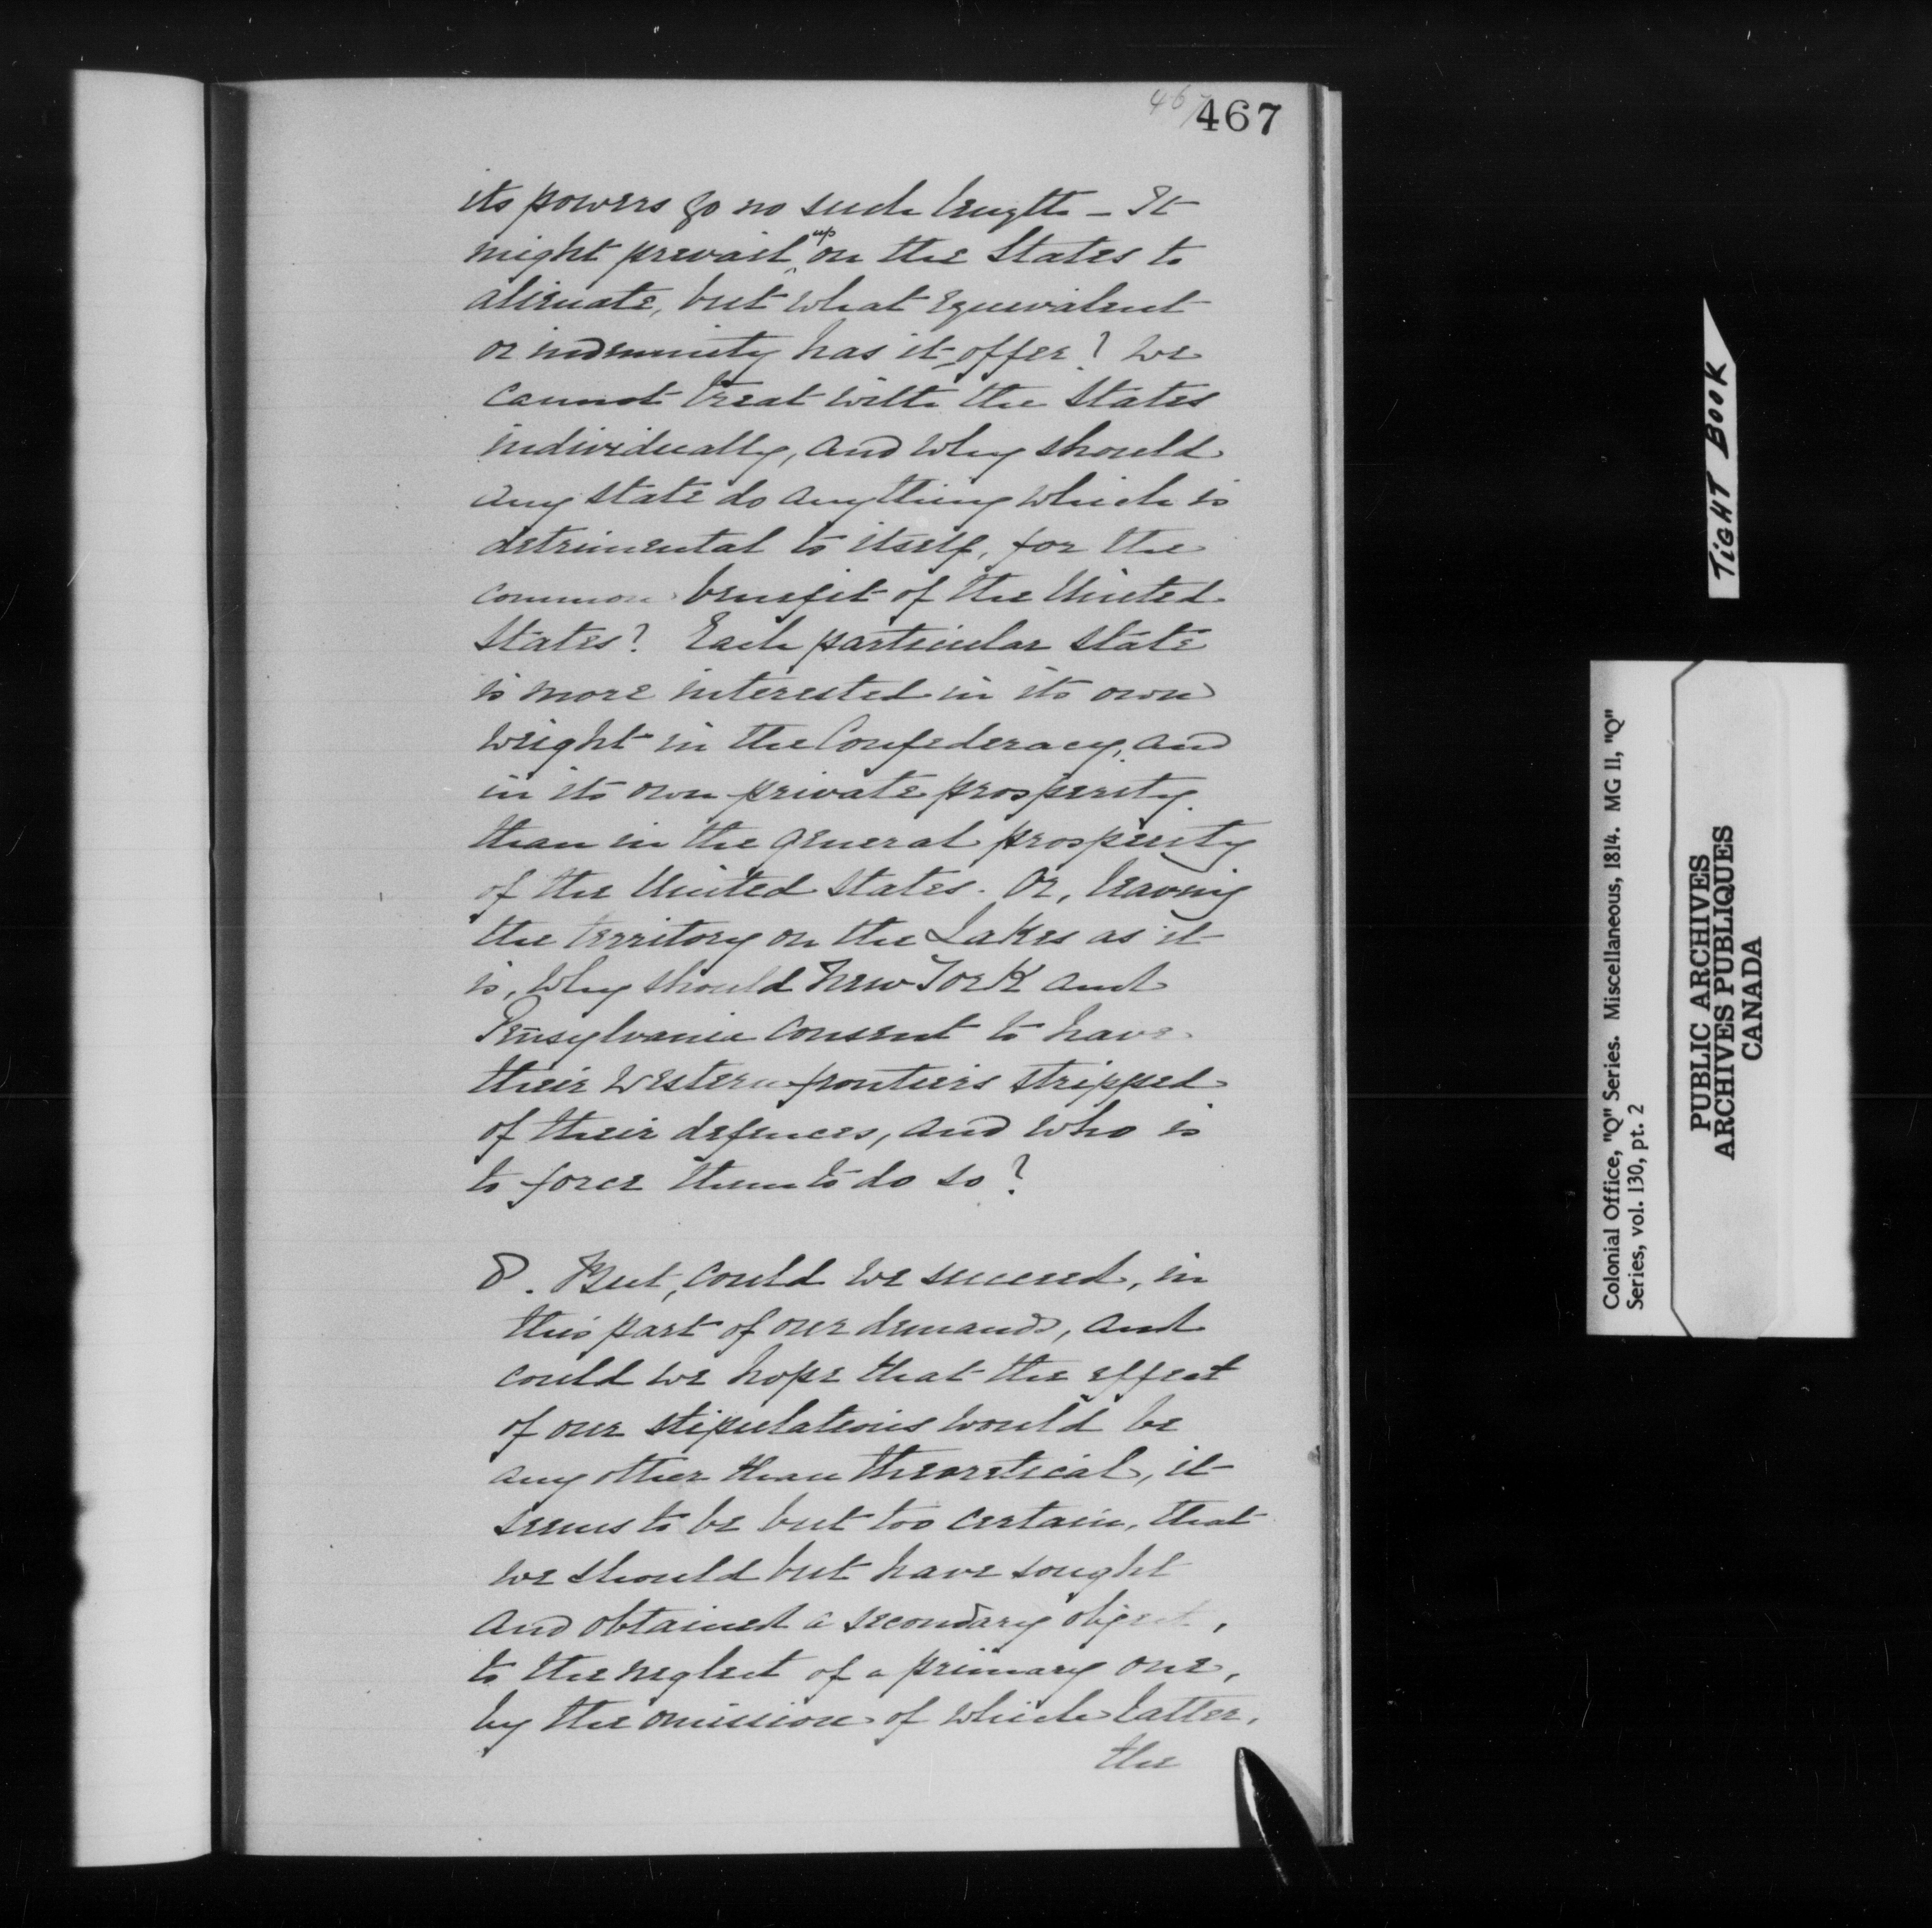 467
467
its powers go no such length – It
might prevail upon the States to
alienate, but what equivalent
or indemnity has it offer? We
cannot treat with the States
individually, and why should
any state do anything which is
detrimental to itself, for the
common benefit of the United
States? Each particular state
is more interested in its own
weight in the Confederacy, and
in its own private prosperity
than in the general prosperity
of the United States. Or, leaving
the territory on the Lakes as it
is, why should New York and
Pen̄sylvania consent to have
their Western frontiers stripped
of their defences, and who is
to force them to do so?
8. But, could we succeed, in
this part of our demands, and
could we hope that the effect
of our stipulations would be
any other than theoretical, it
seems to be but too certain, that
we should but have sought
and obtained a secondary object,
to the neglect of a primary one,
by the omission of which latter,
the
TIGHT BOOK
Colonial Office, "Q" Series. Miscellaneous, 1814. MG 11, "Q"
Series, vol. 130, pt. 2
PUBLIC ARCHIVES
ARCHIVES PUBLIQUES
CANADA